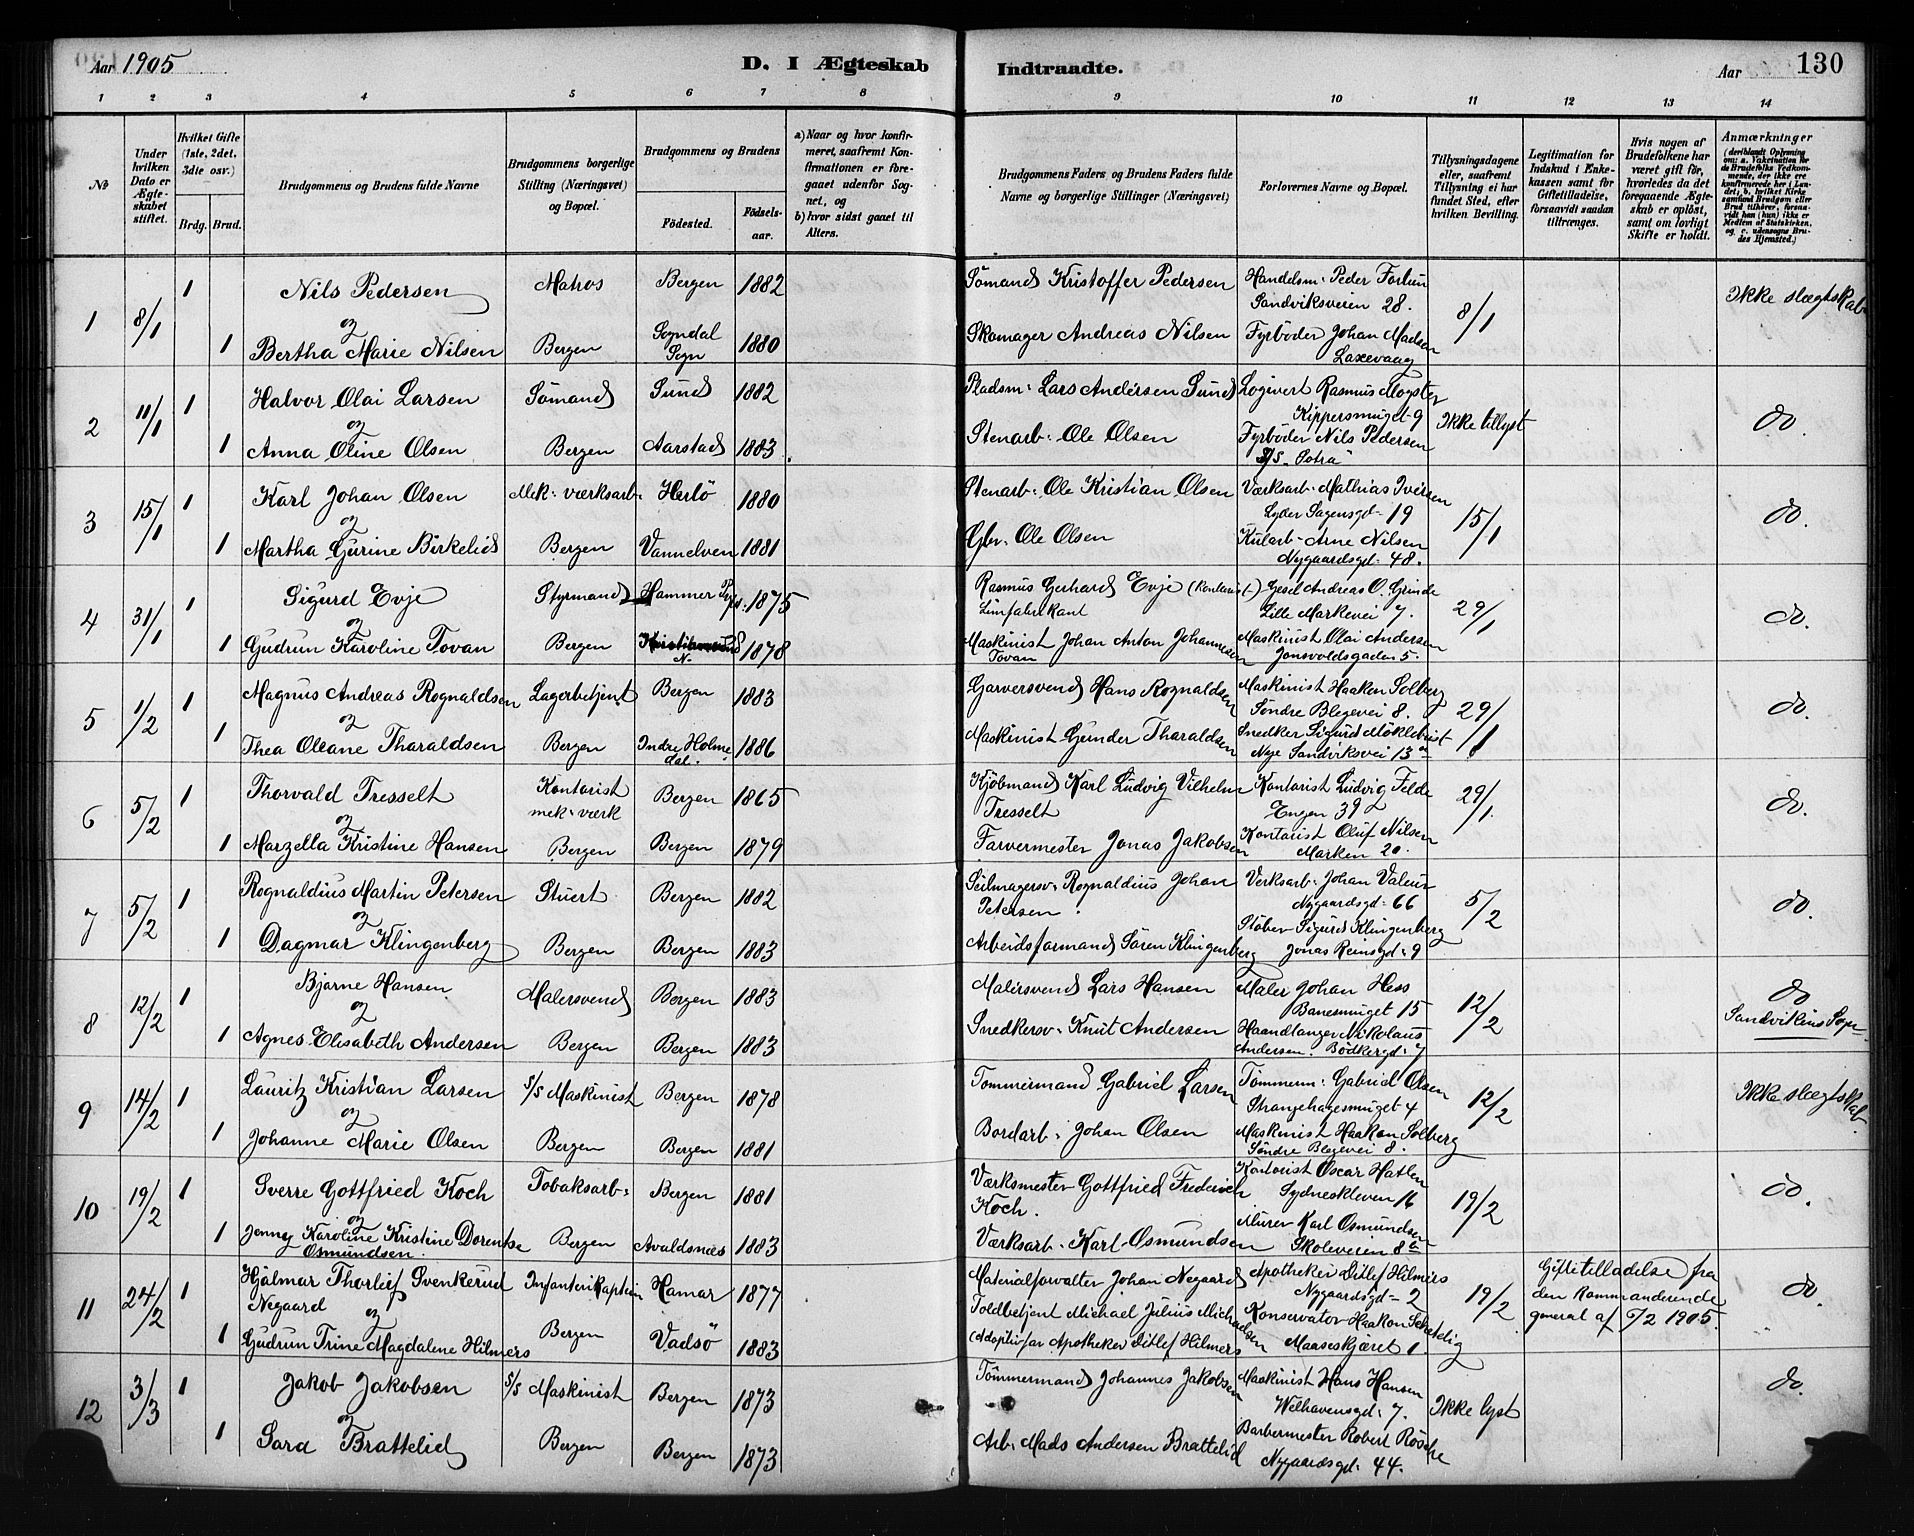 Aar 1905
D. I Ægteskab Indtraadte.
Aar 130
1 2 3 4 5 6 7 8 9 10 11 12 13 14
№
Under hvilken Dato er Ægteskabet stiftet.
Hvilket Gifte (1ste, 2det, 3die osv.)
Brdg. Brud.
Brudgommens og Brudens fulde Navne
Brudgommens borgerlige Stilling (Næringsvei) og Bopæl.
Brudgommens og Brudens
Fødested.
Fødselsaar.
a) Naar og hvor konfirmeret, saafremt Konfirmationen er foregaaet udenfor Sognet, og
b) hvor sidst gaaet til Alters.
Brudgommens Faders og Brudens Faders fulde Navne og borgerlige Stillinger (Næringsvei)
Forlovernes Navne og Bopæl.
Tillysningsdagene eller, saafremt Tillysning ei har fundet Sted, efter hvilken Bevilling.
Legitimation for Indskud i Enkekassen samt for Giftetilladelse, forsaavidt saadan tiltrænges.
Hvis nogen af Brudefolkene har været gift før, hvorledes da det foregaaende Ægteskab er opløst, samt om lovligt Skifte er holdt.
Anmærkninger
(deriblandt Oplysning om: a. Vakcination for de Brudefolks Vedkommende, der ikke ere konfirmerede her i Landet; b. hvilket Kirkesamfund Brudgom eller Brud tilhører, forsaavidt han (hun) ikke er Medlem af Statskirken, og c. udensogns Brudes Hjemsted.)
1 8/1 1 Nils Pedersen Matros Bergen 1882 Sømand Kristoffer Pedersen Handelsm: Peder Fortun 8/1 Ikke slægtskab
og Sandviksveien 28.
1 Bertha Marie Nilsen Bergen Sogndal Sogn 1880 Skomager Andreas Nilsen Fyrbøder Johan Madsen
Laxevaag
2 11/1 1 Halvor Olai Larsen Sømand Sund 1882 Pladsm: Lars Andersen Sund Logivert Rasmus Mogster Ikke tillyst do.
og Kippersmuget 9
1 Anna Oline Olsen Bergen Aarstad 1883. Stenarb: Ole Olsen Fyrbøder Nils Pedersen
S/S "Sotra"
3 15/1 1 Karl Johan Olsen Mek: værksarb: Herlö 1880 Stenarb: Ole Kristian Olsen Værksarb: Mathias Iversen 15/1 do.
og Lyder Sagensgd: 19
1 Martha Gurine Birkelid Bergen Vannelven 1881 Gbr: Ole Olsen Kularb: Arne Nilsen
Nygaardsgd: 48.
4 31/1 1 Sigurd Evje Styrmand Hammer 1875 Rasmus Gerhard Evje (Kontorist) Gesel Andreas O. Grinde 29/1 do.
og Limfabrikant Lille Markevei 7.
1 Gudrun Karoline Tovan Bergen Kristiansund N. 1878 Maskinist Johan Anton Johannesen Maskinist Olai Andersen
Tovan Jonsvoldsgaden 5.
5 1/2 1 Magnus Andreas Rognaldsen Lagerbetjent Bergen 1883 Garversvend Hans Rognaldsen Maskinist Haaken Solberg 29/1 do.
og Søndre Blegevei 8.
1 Thea Oleane Tharaldsen Bergen Indre Holmedal. 1886 Maskinist Gunder Tharaldsen Snedker Sigurd Møklebust
Nye Sandviksvei 13a
6 5/2 1 Thorvald Tresselt Kontorist Bergen 1865 Kjøbmand Karl Ludvig Vilhelm Kontorist Ludvig Felde 29/1. do.
og mek: værk Tresselt Engen 39
1 Marzella Kristine Hansen Bergen Bergen 1879 Farvermester Jonas Jakobsen Kontorist Oluf Nilsen
Marken 20.
7 5/2 1 Rognaldius Martin Petersen Stuert Bergen 1882 Seilmagersv: Rognaldius Johan Verksarb: Johan Valeur 5/2 do.
og Petersen. Nygaardsgd: 66
1 Dagmar Klingenberg Bergen Bergen 1883 Arbeidsformand Søren Klingenberg Støber Sigurd Klingenberg
Jonas Reinsgd: 9
8 12/2 1 Bjarne Hansen Malersvend Bergen 1883 Malersvend Lars Hansen Maler Johan Hess 12/2 do
og Banesmuget 15 Sandvikens Sogn
1 Agnes Elisabeth Andersen Bergen Bergen 1883 Snedkersv: Knut Andersen Haandlanger Nikolaus
Andersen. Bødkergd: 7
9 14/2 1 Lauritz Kristian Larsen S/S Maskinist Bergen 1878 Tømmermand Gabriel Larsen Tømmerm: Gabriel Olsen 12/2 Ikke slægtskab.
og Strangehagesmuget 4
1 Johanne Marie Olsen Bergen Bergen 1881 Bordarb: Johan Olsen Maskinist Haakon Solberg
Søndre Blegevei 8.
10 19/2 1 Sverre Gottfried Koch Tobaksarb: Bergen 1881 Værksmester Gottfried Frederich Kontorist Oscar Hatlen 19/2 do.
og Koch. Sydneskleven 16
1 Jenny Karoline Kristine Dorentse Bergen Avaldsnes 1883 Værksarb: Karl Osmundsen Murer Karl Osmundsen
Osmundsen. Skoleveien 8
11 24/2 1 Hjalmar Thorleif Svenkerud Infanterikaptein Hamar 1877 Materialforvalter Johan Negaard Apotheker Ditlef Hilmers 19/2 Giftetilladelse fra do.
Negaard og Nygaardsgd: 2 den kommanderende
Toldbetjent Michael Julius Michaelsen Konservator Haakon Schetelig general af 7/2 1905.
1 Gudrun Trine Magdalene Hilmers Bergen Vadsö 1883 (Adoptivfar Apotheker Ditlef Hilmers Maaseskjæret 1.
12 3/3 1 Jakob Jakobsen S/S Maskinist Bergen 1873 Tømmermand Johannes Jakobsen Maskinist Hans Hansen Ikke lyst do.
og Welhavensgd: 7.
1 Sara Brattelid Bergen Bergen 1873 Arb: Mads Andersen Brattelid Barbermester Robert Rösche
Nygaardsgd: 44.